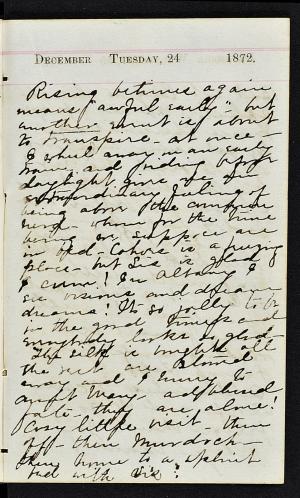 December Tuesday, 24 1872.
Rising betimes again
means "awful early" - but
another event is about
to transpire - at once -
I wheel away in an early
train and riding before
daylight gives me an
extraordinary feeling of
being above the common
herd - whom for the time
being I suppose are
in bed - Cohoes is a freezing
place - but Sis is glad
I came! In Albany I
see visions and dream
dreams! It's so jolly to be
in the good times and
everybody looks so glad -
The silk is bought all
the rest are
away and I hurry to
Aunt Mary - and
fate - they are alone!
Cosy little visit - then
off - then Murdoch -
then home to a
bed with Sis!